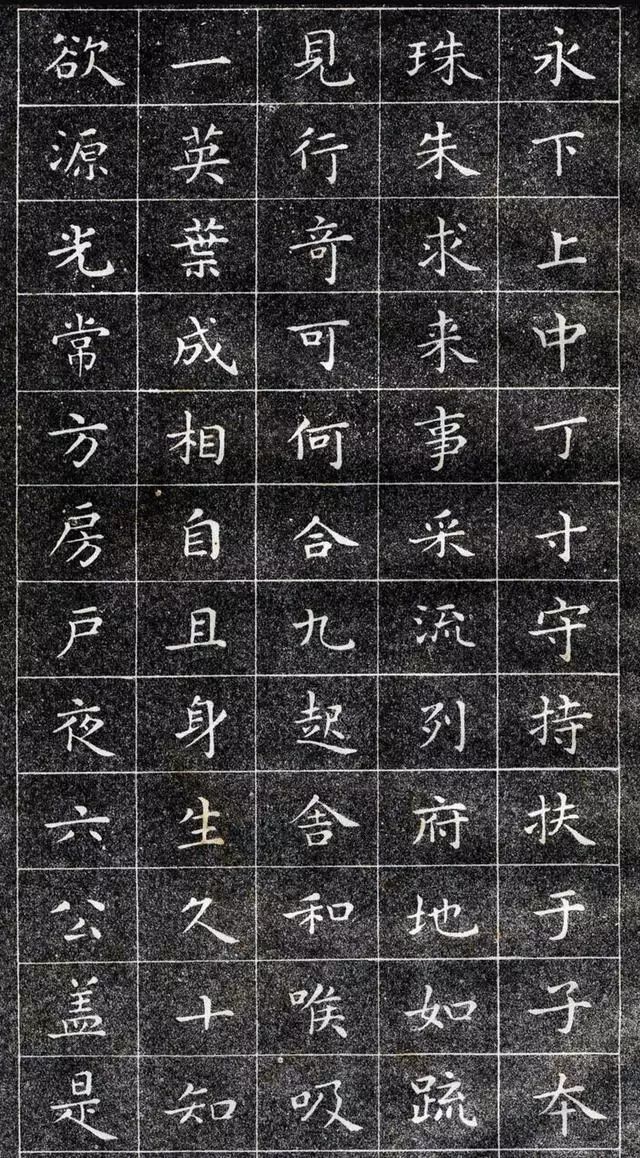 永下上中丁寸守持扶于子本
珠朱求来事采流列府地如䟽
見行奇可何合九起舍和唉吸
一英葉成相自且身生久十知
欲源光常方房戸夜六公盖是